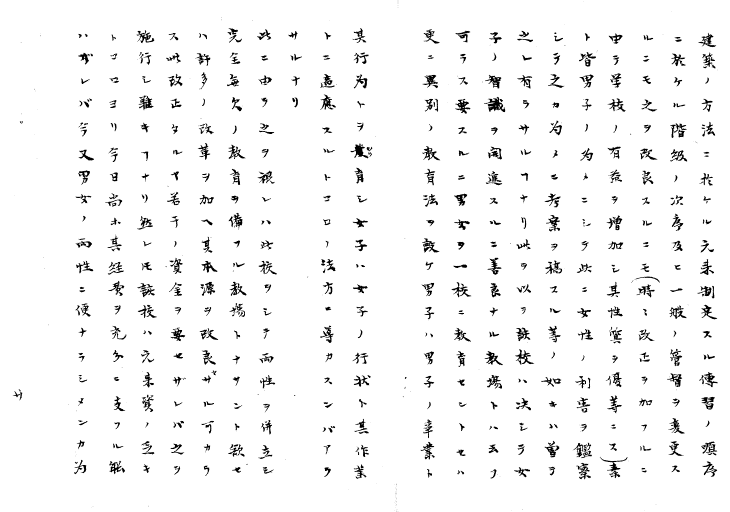 建築ノ方法ニ於ケル元来制定スル傳習ノ順序
ニ於ケル階級ノ次序及ヒ一般ノ管督ヲ変更ス
ルニモ之ヲ改良スルニモ(時々改正ヲ加フルニ
中ラ学校ノ有益ヲ増加シ其性質ヲ優等ニス)素
ト皆男子ノ為メニシテ此ニ女性ノ利害ヲ鑑察
シテ之カ為メニ考案ヲ稿スル等ノ如キハ曽テ
之レ有ラサルヿナリ此ヲ以テ該校ハ决シテ女
子ノ智識ヲ開進スルニ善良ナル教場トハ云フ
可ラス要スルニ男女ヲ一校ニ教育セントセハ
更ニ異別ノ教育法ヲ設ケ男子ハ男子ノ事業ト
其行為トヲ教育シ女子ハ女子ノ行状ト其作業
トニ適應スルトコロノ法方ニ導カスンバアラ
サルナリ
此ニ由テ之ヲ視レハ此校ヲシテ両性ヲ併立シ
完全無欠ノ教育ヲ備フル教場トナサント欲セ
ハ許多ノ改革ヲ加ヘ其本源ヲ改良セサル可カラ
ス此改正タルヤ若干ノ資金ヲ要セザレバ之ヲ
施行シ難キヿナリ然レモ該校ハ元来資ノ乏キ
トコロヨリ今日尚ホ其経費ヲ充分ニ支フル能
ハザレバ今又男女ノ両性ニ便ナラシメンカ為